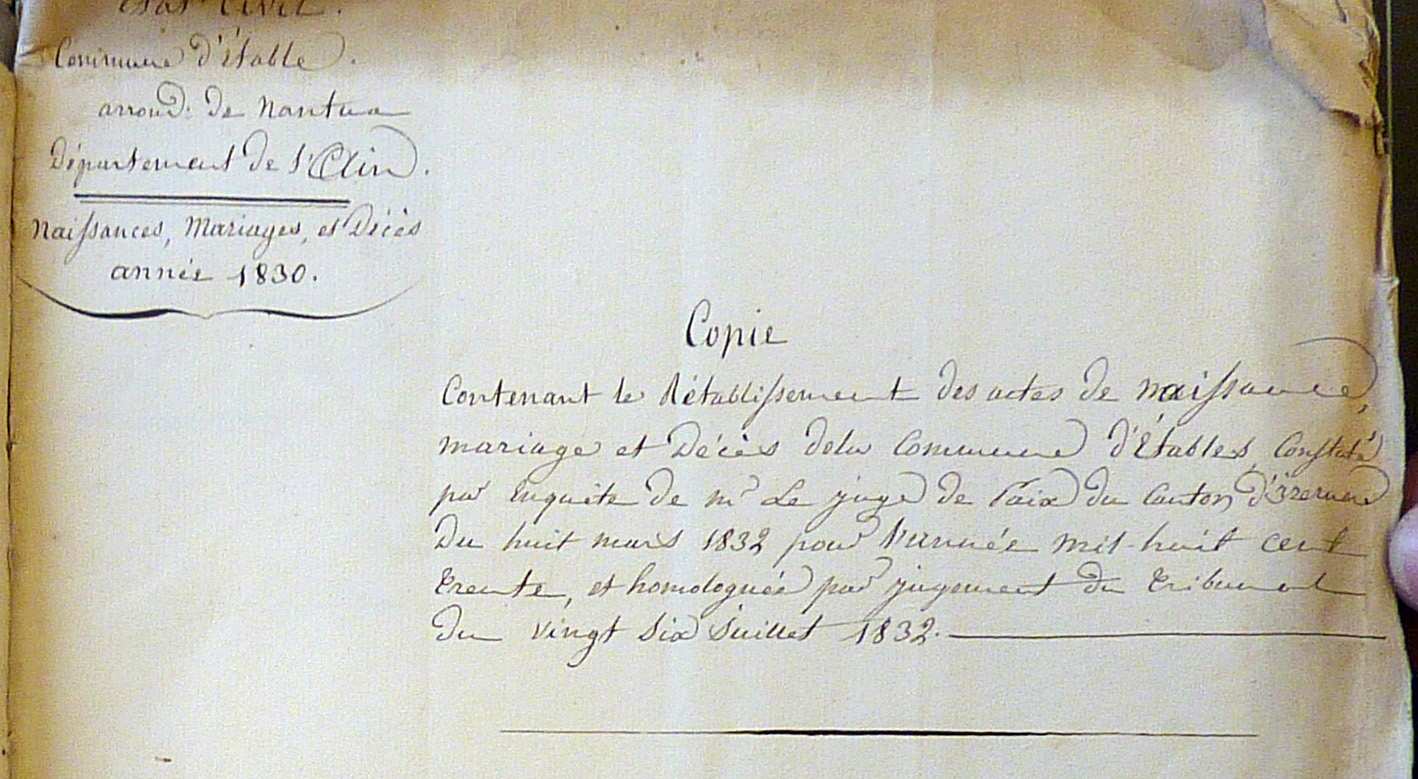 Etat Civil.
Commune d'Étable.
arrond: de Nantua
Département de l'Ain.
Naissances, Mariages, et Décès
année 1830.
Copie
Contenant le Rétablissement des actes de naissance,
mariage et Décès dela Commune d'Étables, Constaté
par Enquête de mr Le juge de Paix du Canton d'izernore
Du huit mars 1832 pour l'année mil huit cent
trente, et homologuée par jugement du tribunal
du vingt six juillet 1832.